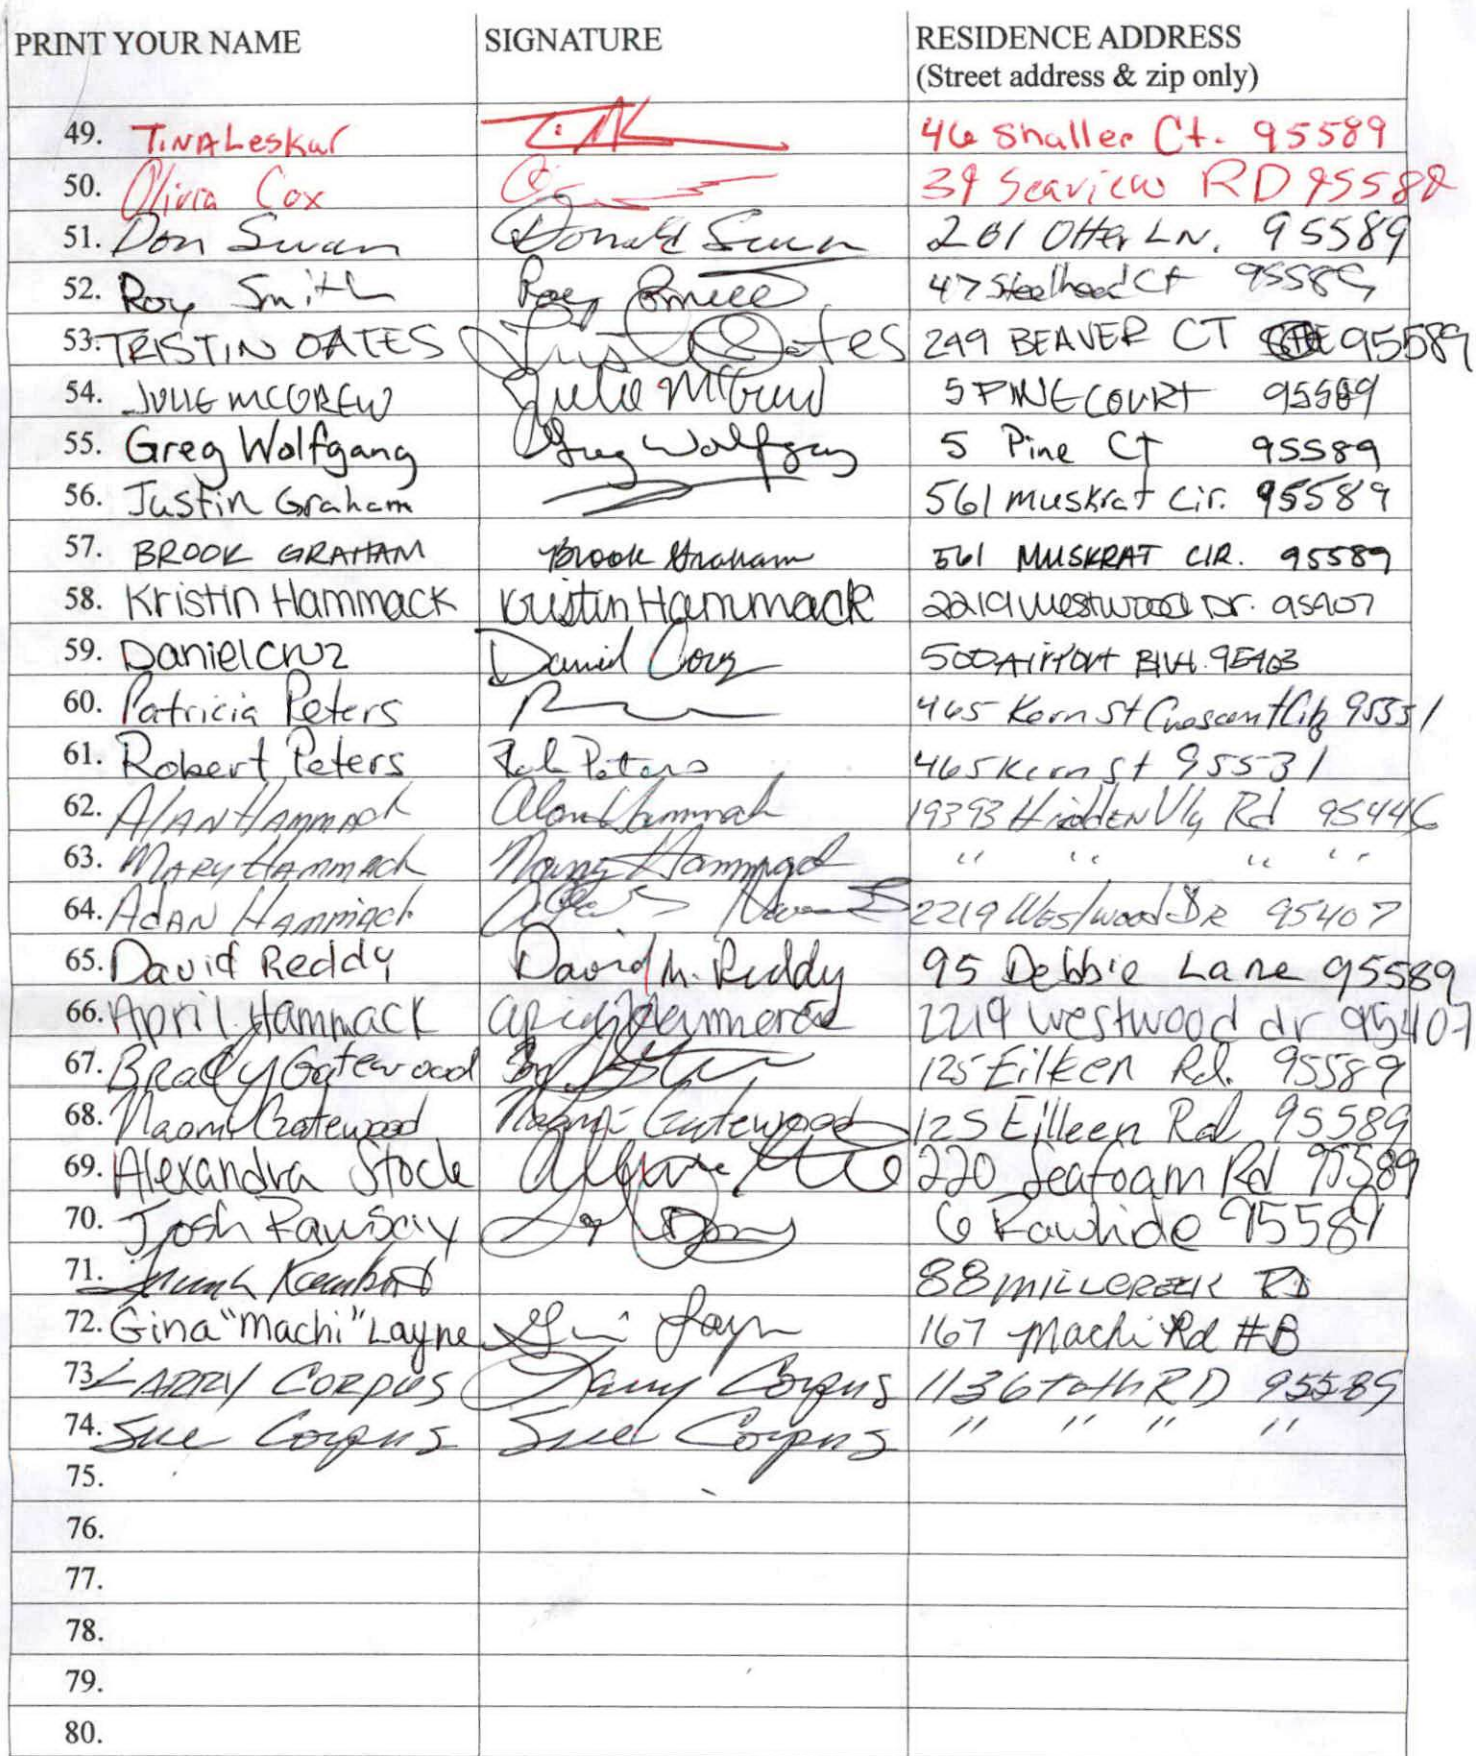 PRINT YOUR NAME SIGNATURE RESIDENCE ADDRESS
(Street address & zip only)
49. TINA Leskar 46 Shaller Ct. 95589
50. Olivia Cox 39 Seaview RD 95589
51. Don Swan Donald Swan 201 Otter LN. 95589
52. Roy Smith Roy Smith 47 Steelhead Ct 95589
53. TRISTIN OATES Tristin Oates 299 BEAVER CT 95589
54. JULIE MCGREW Julie McGrew 5 PINE COURT 95589
55. Greg Wolfgang Greg Wolfgang 5 Pine Ct 95589
56. Justin Graham 561 Muskrat Cir. 95589
57. BROOK GRAHAM Brook Graham 561 MUSKRAT CIR. 95589
58. Kristin Hammack Kristin Hammack 2219 Westwood Dr. 95407
59. Daniel Cruz Daniel Cruz 500 Airport Blvd. 95403
60. Patricia Peters 465 Kern St Crescent City 95531
61. Robert Peters Rob Peters 465 Kern St 95531
62. ALAN HAMMACK Alan Hammack 19393 Hidden Vly Rd 95446
63. MARY HAMMACK Hammack " " " "
64. ADAN HAMMACK 2219 Westwood DR 95407
65. David Reddy David M. Reddy 95 Debbie Lane 95589
66. April Hammack April Hammack 2219 westwood dr 95407
67. Brady Gatewood 125 Eilken Rd. 95589
68. Naomi Gatewood Naomi Gatewood 125 Eilleen Rd 95589
69. Alexandra Stock 220 Seafoam Rd 95589
70. Josh Ramsay 6 Rawhide 95589
71. 88 MILLCREEK RD
72. Gina "Machi" Layne Gina Layne 167 Machi Rd #B
73. LARRY CORPUS Larry Corpus 1136 Toth RD 95589
74. Sue Corpus Sue Corpus " " " "
75.
76.
77.
78.
79.
80.